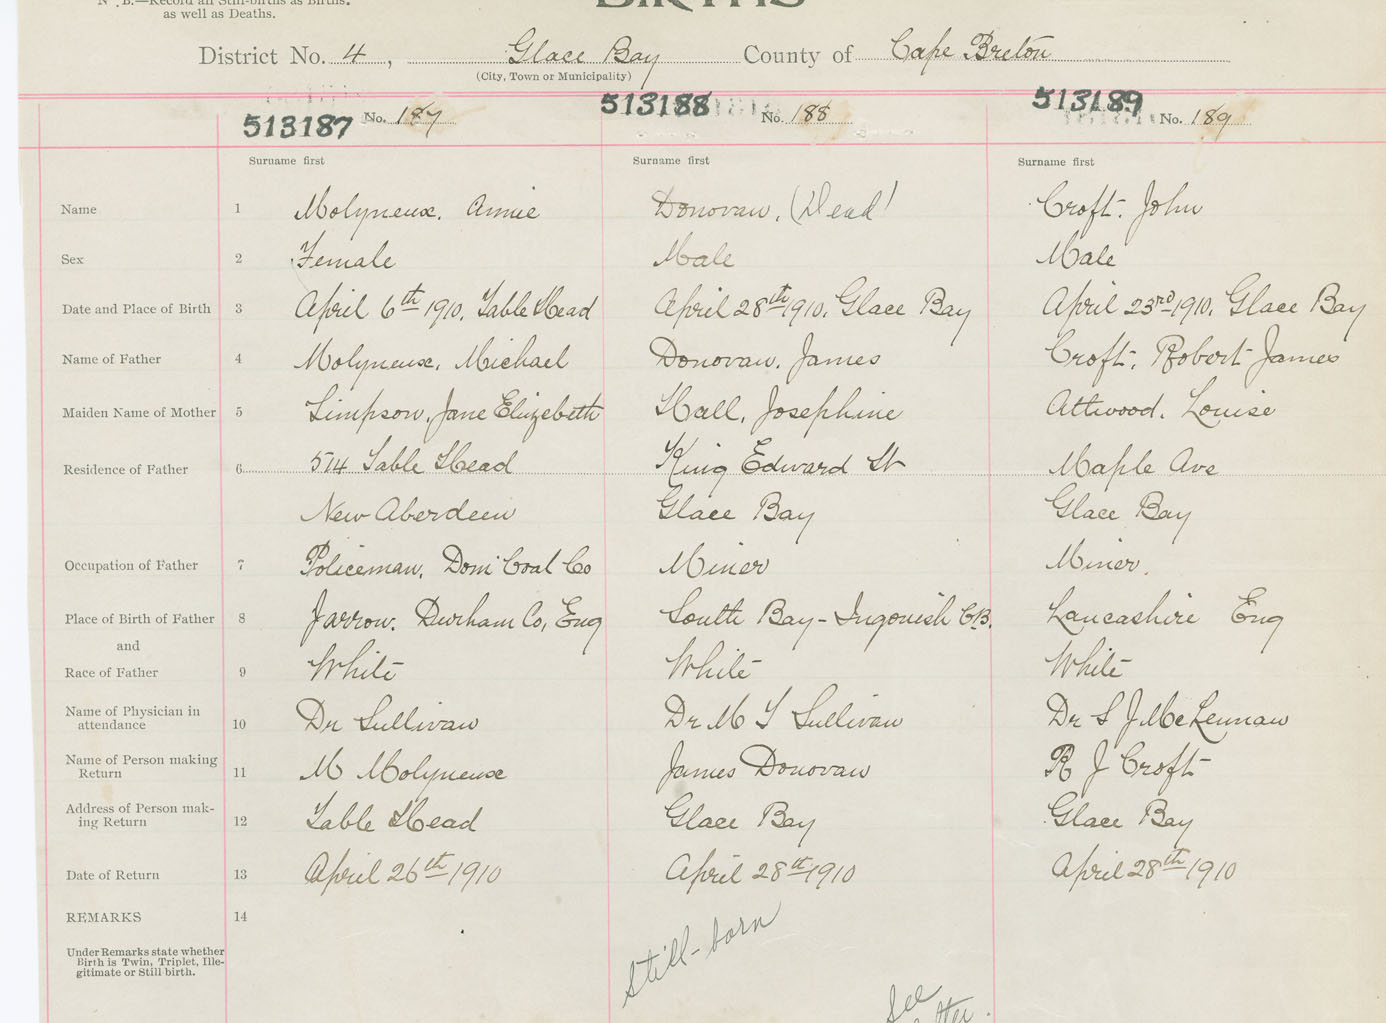 N.B.—Record all Still-births as Births,
as well as Deaths.
BIRTHS
District No. 4, Glace Bay County of Cape Breton
(City, Town or Municipality)
513187 No. 187 513188 No. 188 513189 No. 189
Surname first Surname first Surname first
Name 1 Molyneux, Annie Donovan, (Dead) Croft, John
Sex 2 Female Male Male
Date and Place of Birth 3 April 6th 1910, Table Head April 28th 1910, Glace Bay April 23rd 1910, Glace Bay
Name of Father 4 Molyneux, Michael Donovan, James Croft, Robert James
Maiden Name of Mother 5 Simpson, Jane Elizebeth Hall, Josephine Attwood, Louise
Residence of Father 6 574 Table Head King Edward St Maple Ave
New Aberdeen Glace Bay Glace Bay
Occupation of Father 7 Policeman, Dom Coal Co Miner Miner.
Place of Birth of Father 8 Jarrow, Durham Co, Eng South Bay - Ingonish C.B. Lancashire Eng
and
Race of Father 9 White White White
Name of Physician in
attendance 10 Dr Sullivan Dr M T Sullivan Dr S J McLennan
Name of Person making
Return 11 M Molyneux James Donovan R J Croft
Address of Person mak-
ing Return 12 Table Head Glace Bay Glace Bay
Date of Return 13 April 26th 1910 April 28th 1910 April 28th 1910
REMARKS 14
Still-born
Under Remarks state whether
Birth is Twin, Triplet, Ille-
gitimate or Still birth.
See